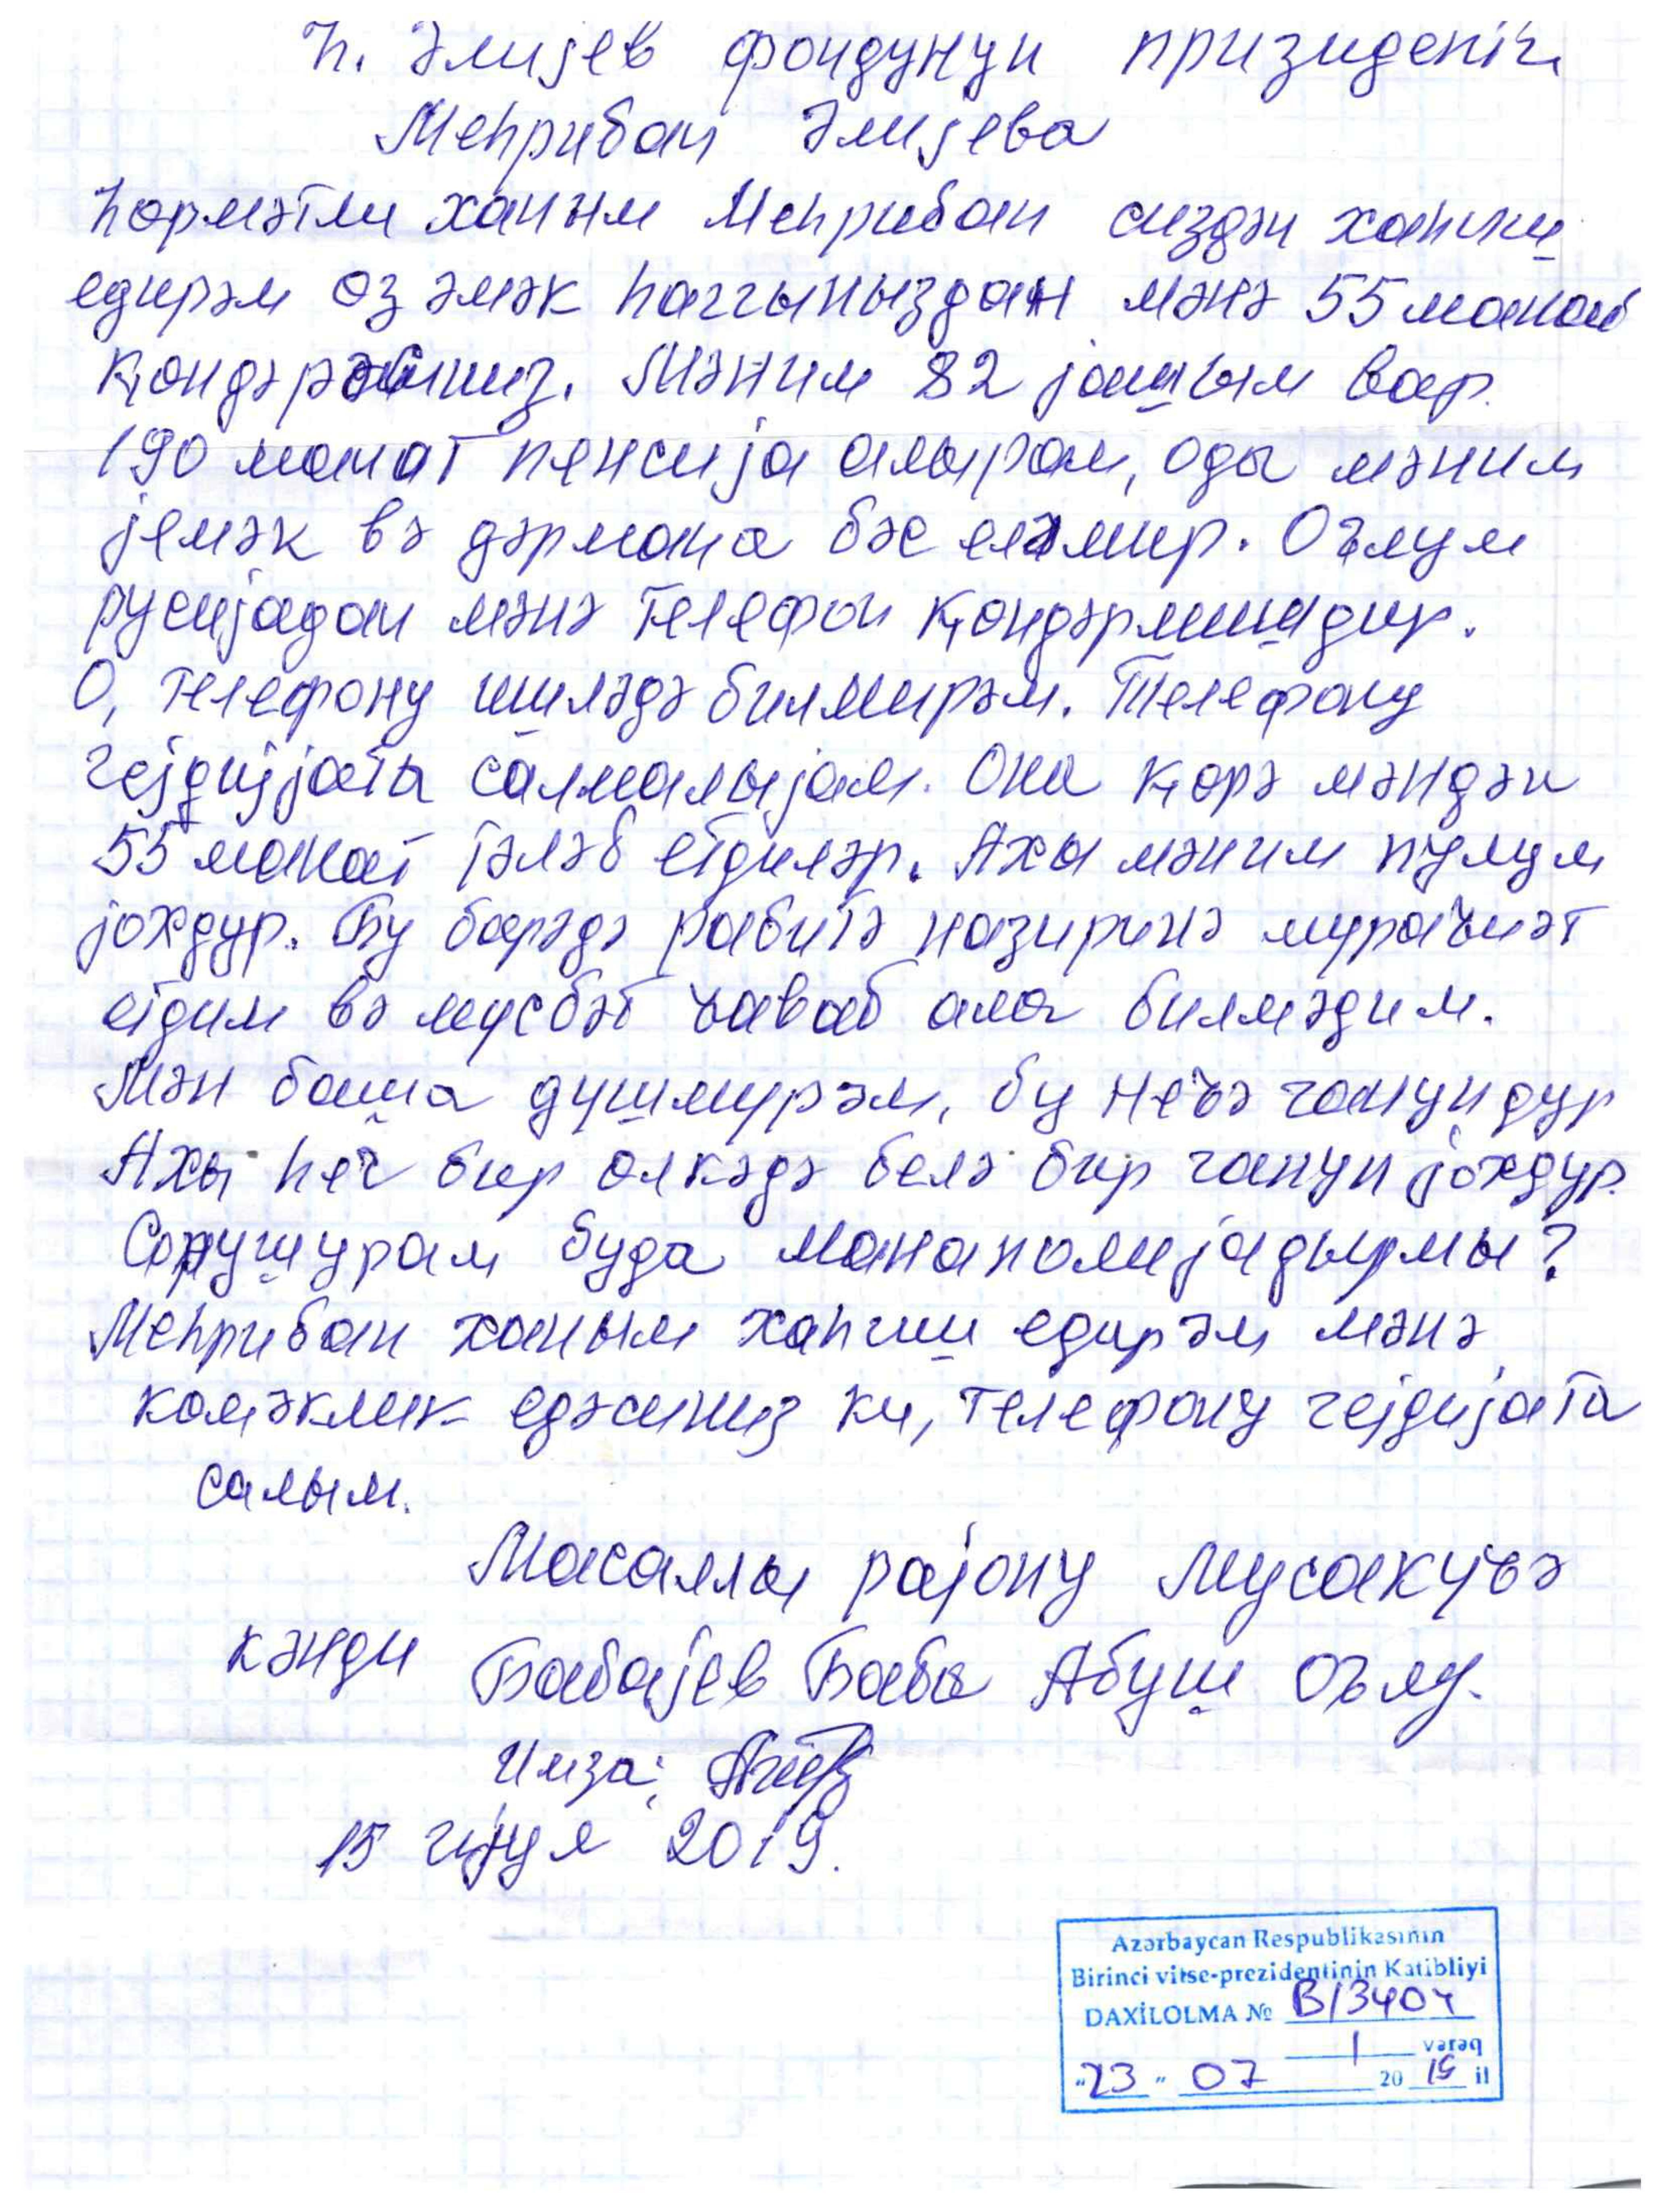 Һ. Әлијев фондунун призиденти
Меһрибан Әлијева
Һөрмәтли ханым Меһрибан сиздән хаһиш
едирәм өз әмәк һаггыныздан мәнә 55 манат
ҝөндәрәсиниз. Мәним 82 јашым вар.
190 манат пенсија алырам, оды мәним
јемәк вә дәрмана бәс еләмир. Оғлум
русијадан мәнә телефон ҝөндәрмишдир.
О, телефону ишләдә билмирәм. Телефону
гејдијјата салмалыјам. Она ҝөрә мәндән
55 манат тәләб етдиләр. Ахы мәним пулум
јохдур. Бу барәдә рабитә назиринә мураҹиәт
етдим вә мусбәт ҹаваб ала билмәдим.
Мән баша душмурәм, бу неҹә ганундур
Ахы һеч бир өлкәдә белә бир ганун јохдур.
Сорушурам буда манаполијадырмы?
Меһрибан ханым хаһиш едирәм мәнә
көмәклик едәсиниз ки, телефону гејдијата
салым.
Масаллы рајону Мусакуҹә
кәнди Бабајев Баба Абуш оғлу.
Имза:
15 ијул 2019.
Azərbaycan Respublikasının
Birinci vitse-prezidentinin Katibliyi
DAXİLOLMA № B/3404
1 vərəq
"23" 07 2019 il